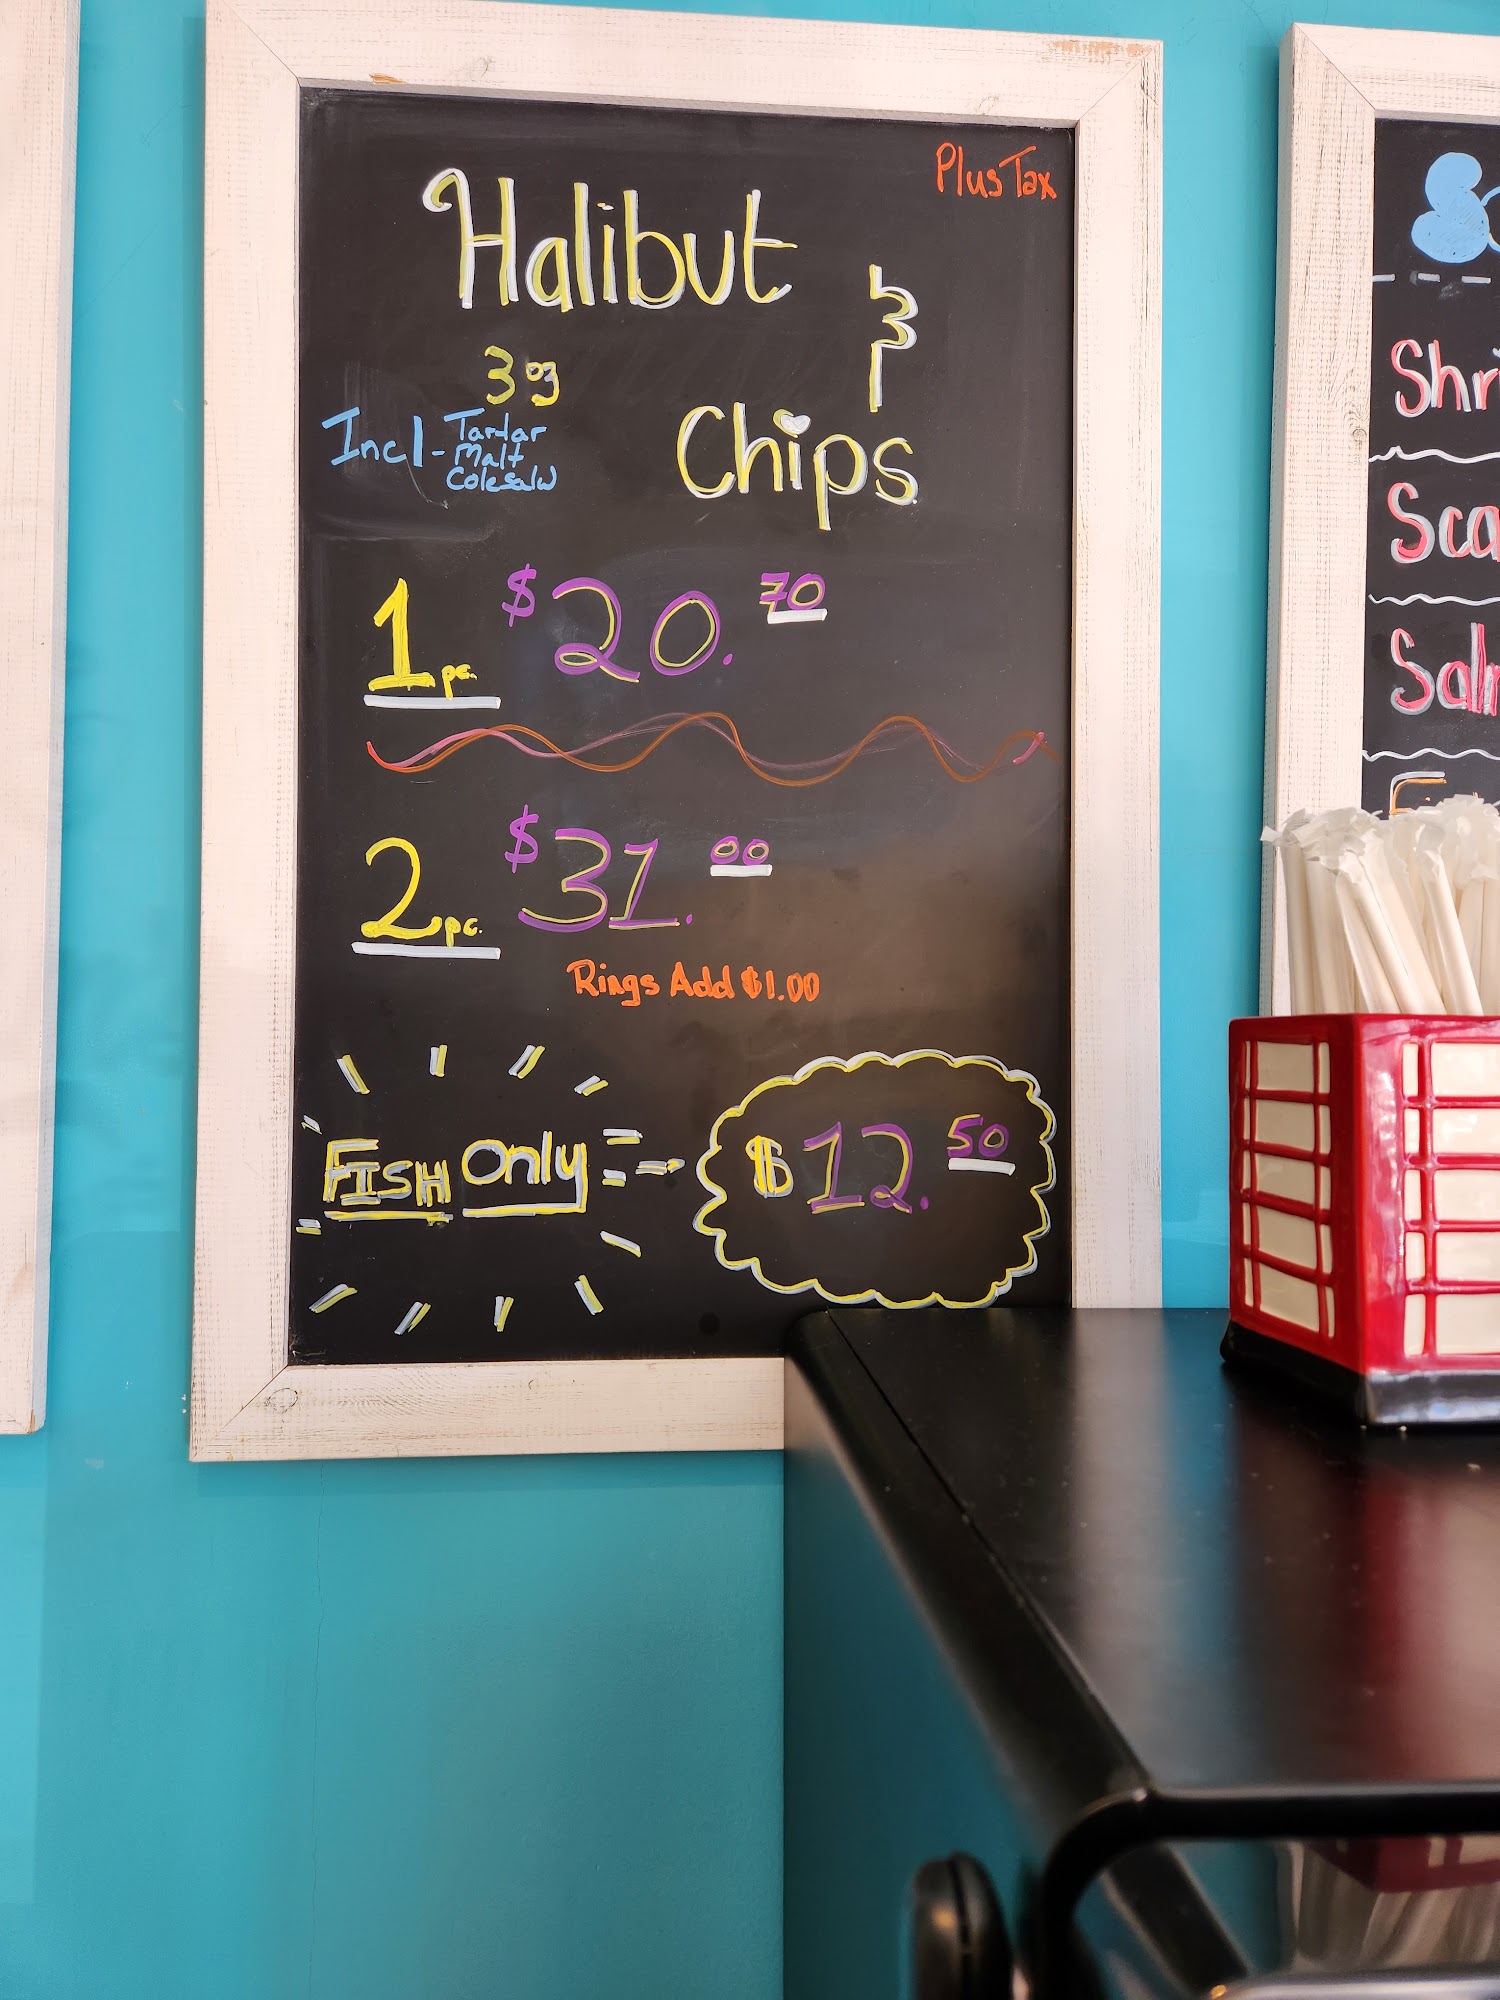 Plus Tax
Halibut
&
Chips
3oz
Incl - Tartar
Malt
Colesalw
1pc. $20.70
2pc. $31.00
Rings Add $1.00
FISH Only $12.50